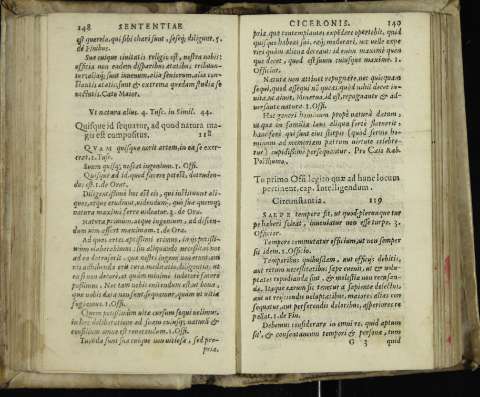 148 SENTENTIAE
est querela, qui sibi chari sunt, seseq; diligunt. 5.
de Finibus.
Sue cuique ciuitatis religio est, nostra nobis:
officia non eadem disparibus aetatibus tribuun-
tur: aliaq; sunt iuuenum, alia seniorum.
stantis aetatis sunt & extrema quaedam studia se
nectutis. Cato Maior.
Vt natura alius. 4. Tusc. in Simil. 44.
Quisque id sequatur, ad quod natura ma
gis est compositus. 118
QVAM quisque norit artem, in ea se exer-
ceat. 1. Tusc.
Suum quisq; noscat ingenium. 1. Offi.
Quisque ad id, quod facere potest,
dus est. 1. de Orat.
Diligentissime hoc est eis, qui instituunt ali-
quos, atque erudiunt, uidendum, quo sua quemq;
natura maxime ferre uideatur. 3. de Ora.
Natura primum, atque ingenium, ad dicen-
dum uim affert maximam. 1. de Ora.
Ad quas res aptissimi erimus, in ijs potissi-
mum elaborabimus: sin aliquando necessitas nos
ad ea detruserit, quae nostri ingenij non erunt, om
nis adhibenda erit cura, meditatio, diligentia, ut
ea si non decore, at quàm minime indecore facere
possimus. Nec tam nobis enitendum est ut bona,
quae nobis data non sunt, sequamur, quàm ut uitia
fugiamus. 1. Offi.
Quem potissimum uitae cursum sequi uelimus,
in hac deliberatione ad suam cuiusq; naturam
consilium omne est reuocandum. 1. Offi.
Tuenda sunt sua cuique non uitiosa, sed pro-
pria,
CICERONIS. 149
pria, quae contemplantes expedere oportebit, quid
quisque habeat sui, eaq; moderari, nec uelle expe
riri quàm aliena deceant: id enim maxime quen
que decet, quod est suum cuiusque maxime. 1.
Officior.
Natura non attinet repugnare, nec quicquam
sequi, quod assequi non queas: quia nihil decet in-
uita, ut aiunt, Minerua, id est, repugnante & ad-
uersante natura. 1. Offi.
Hoc generi hominum prope natura datum,
ut qua in familia laus aliqua forte floruerit,
hanc ferè, qui sunt eius stirpis (quod sermo ho-
minum ad memoriam patrum uirtute celebre-
tur) cupidissime persequantur. Pro Caio Rab.
Posthumo.
To primo Offi legito quae ad hunc locum
pertinent, cap. Intelligendum.
Circunstantia. 119
SAEPE tempore fit, ut quod plerunque tur
pe haberi soleat, inueniatur non esse turpe. 3.
Officior.
Tempore commutatur officium, ut non semper
sit idem. 1. Officio.
Temporibus quibusdam, aut officijs debitis,
aut rerum necessitatibus saepe euenit, ut & uolu-
ptates repudiandae sint, & molestiae non recusan-
dae. Itaque earum sic tenetur à sapiente delectus,
aut ut reijciendis uoluptatibus, maiores alias con
sequatur, aut perferendis doloribus, asperiores re
pellat. 1. de Fin.
Debemus considerare in omni re, quid aptum
sit, & consentaneum tempori & personae, tum
G 3 quid